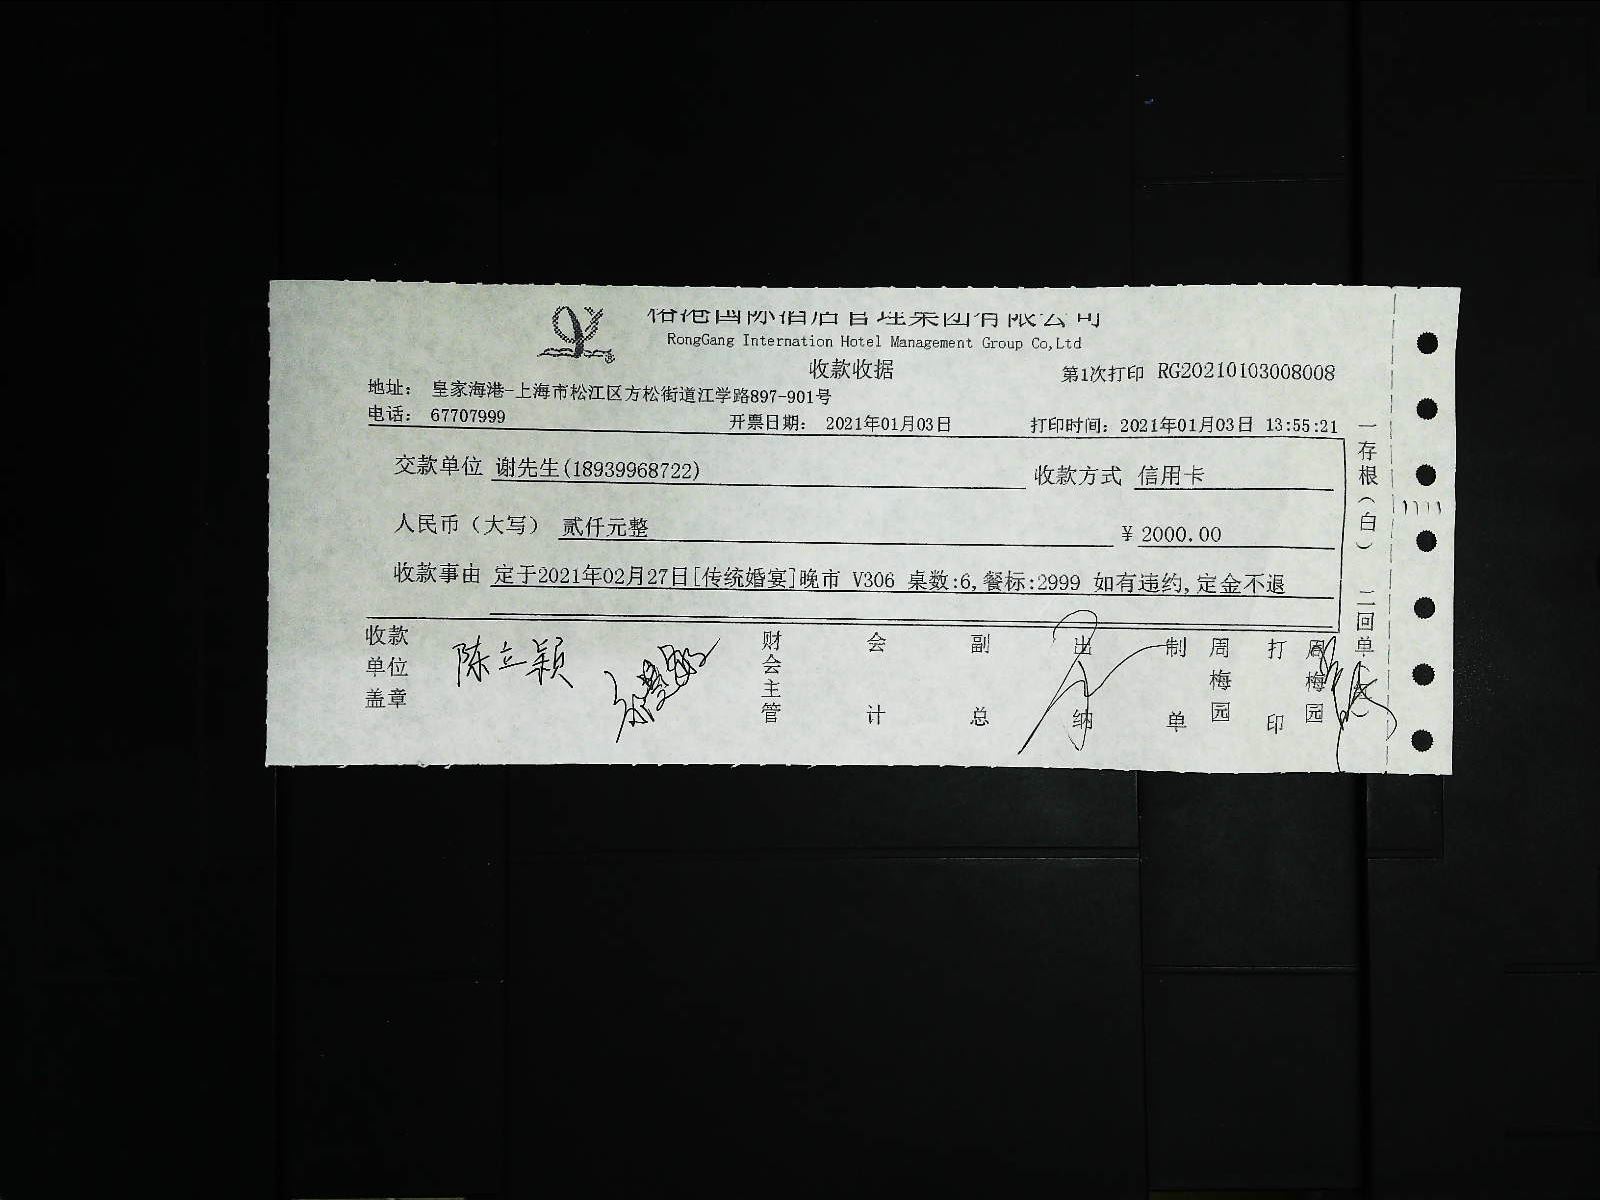 裕港国际酒店管理集团有限公司
RongGang Internation Hotel Management Group Co,Ltd
收款收据
第1次打印 RG20210103008008
地址： 皇家海港-上海市松江区方松街道江学路897-901号
电话： 67707999 开票日期： 2021年01月03日 打印时间：2021年01月03日 13:55:21
交款单位 谢先生(18939968722) 收款方式 信用卡
人民币（大写） 贰仟元整 ￥2000.00
收款事由 定于2021年02月27日[传统婚宴]晚市 V306 桌数:6,餐标:2999 如有违约,定金不退
收款单位盖章 陈立颖 财会主管 会计 副总 出纳 制单 周梅园 打印 周梅园
一存根（白） 二回单（红）